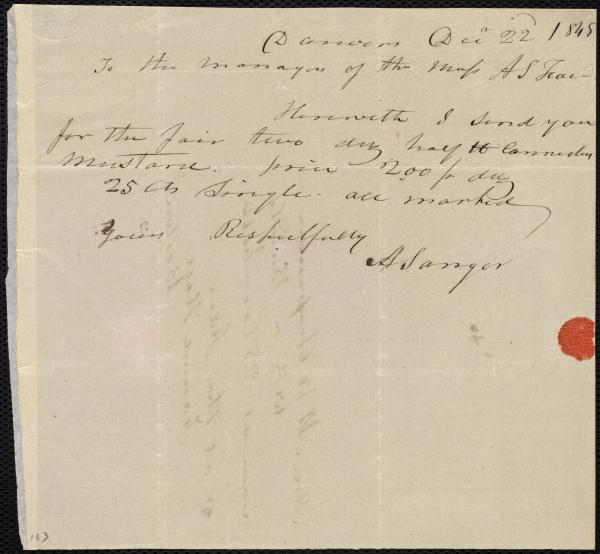 Danvers Decr 22 1845
To the managers of the Mass A S Fair
Herewith I send you
for the fair two doz half tb Cannister
Mustard. price $2.00 pr doz
25 cts Single - all marked
Yours Respectfully
A Sanger
163